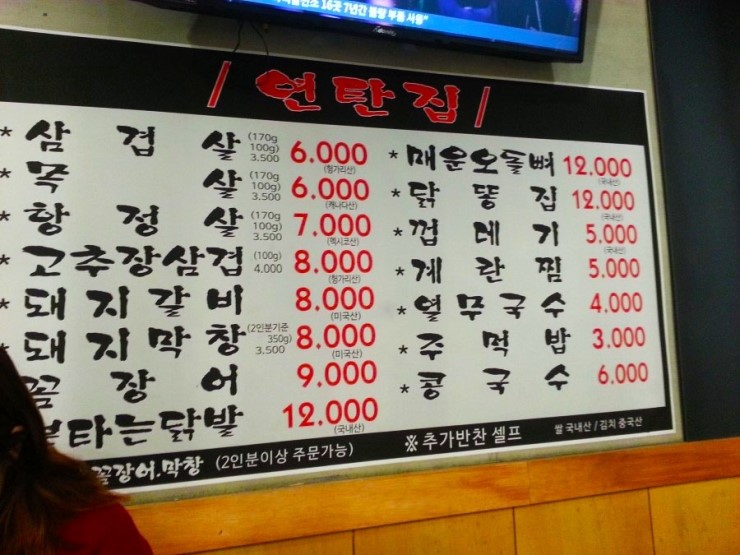 16곳 7년간 불량 부품 사용"
/ 연탄집 /
* 삼겹살 (170g 100g) 3.500 6.000 (헝가리산)
* 목살 (170g 100g) 3.500 6.000 (캐나다산)
* 항정살 (170g 100g) 3.500 7.000 (멕시코산)
* 고추장삼겹 (100g) 4.000 8.000 (헝가리산)
* 돼지갈비 8.000 (미국산)
* 돼지막창 (2인분기준 350g) 3.500 8.000 (미국산)
꼼장어 9.000
불타는닭발 12.000 (국내산)
* 매운오돌뼈 12.000 (국내산)
* 닭똥집 12.000 (국내산)
* 껍데기 5.000 (국내산)
* 계란찜 5.000
* 열무국수 4.000
* 주먹밥 3.000
* 콩국수 6.000
꼼장어.막창 (2인분이상 주문가능)
※ 추가반찬 셀프
쌀 국내산 / 김치 중국산